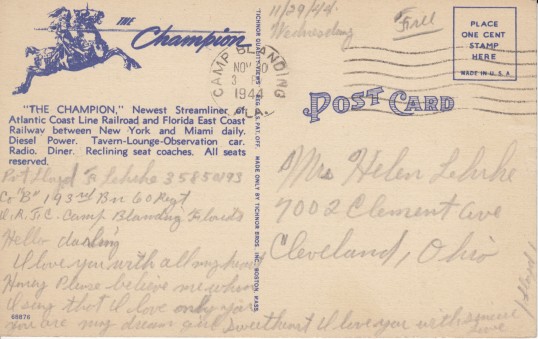 THE
Champion
"THE CHAMPION," Newest Streamliner of
Atlantic Coast Line Railroad and Florida East Coast
Railway between New York and Miami daily.
Diesel Power. Tavern-Lounge-Observation car.
Radio. Diner. Reclining seat coaches. All seats
reserved.
Pvt Lloyd F Lehrke 35850193
Co "B" 193rd Bn 60 Regt
Camp Blanding Florida
Hello darling
I love you with all my heart
Honey Please believe me when
I say that I love only you
You are my dream girl Sweetheart I love you with sincere
love
Lloyd
68876
TICHNOR QUALITY VIEWS REG. U.S. PAT. OFF. MADE ONLY BY TICHNOR BROS. INC. BOSTON, MASS.
11/29/44
Wednesday
Free
CAMP BLANDING
NOV 30
3
1944
FLA.
PLACE
ONE CENT
STAMP
HERE
MADE IN U.S.A.
POST CARD
Mrs Helen Lehrke
7002 Clement Ave
Cleveland, Ohio